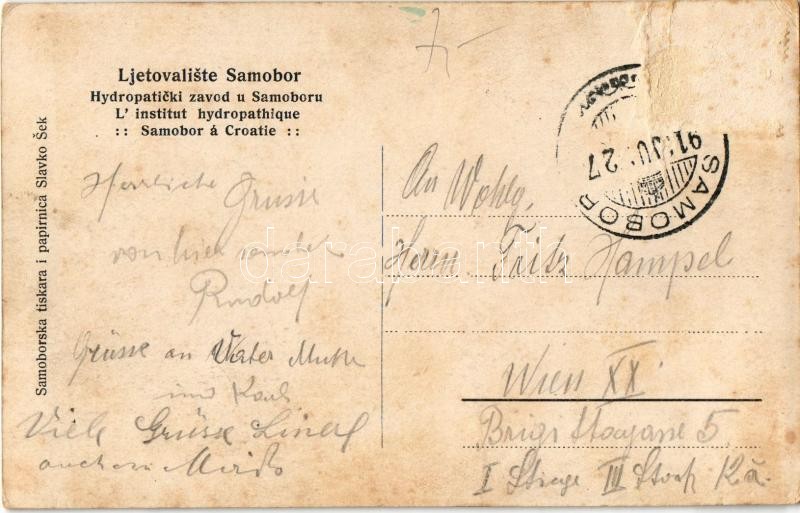 Ljetovalište Samobor
Hydropatički zavod u Samoboru
L' institut hydropathique
:: Samobor á Croatie ::
Samoborska tiskara i papirnica Slavko Šek
Herzliche Grüsse
von hier sendet
Rudolf
Grüsse an Vater Mutter
und Karl
Viele Grüsse
auch
An Wohlg.
Herrn Fritz Hampel
Wien XX
5
I Stiege III Stock
SAMOBOR
darabanth.com